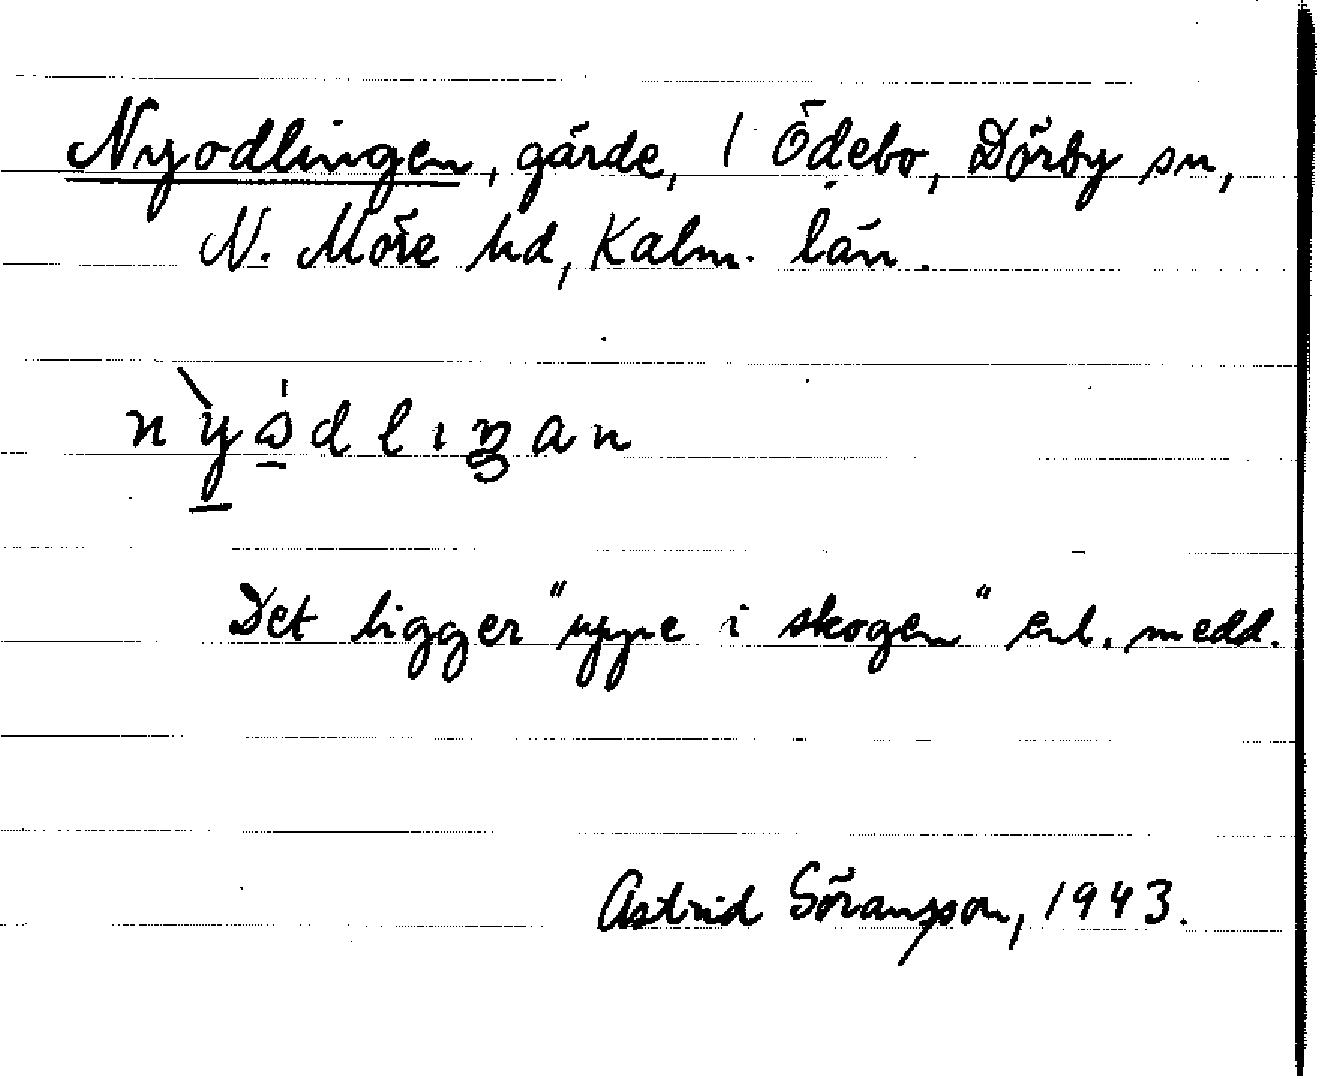 Nyodlingen, gärde, 1 Ödebo, Dörby sn,
N. Möre hd, Kalm. län.
nỳódlıŋan
Det ligger "uppe i skogen" enl. medd.
Astrid Söransson, 1943.